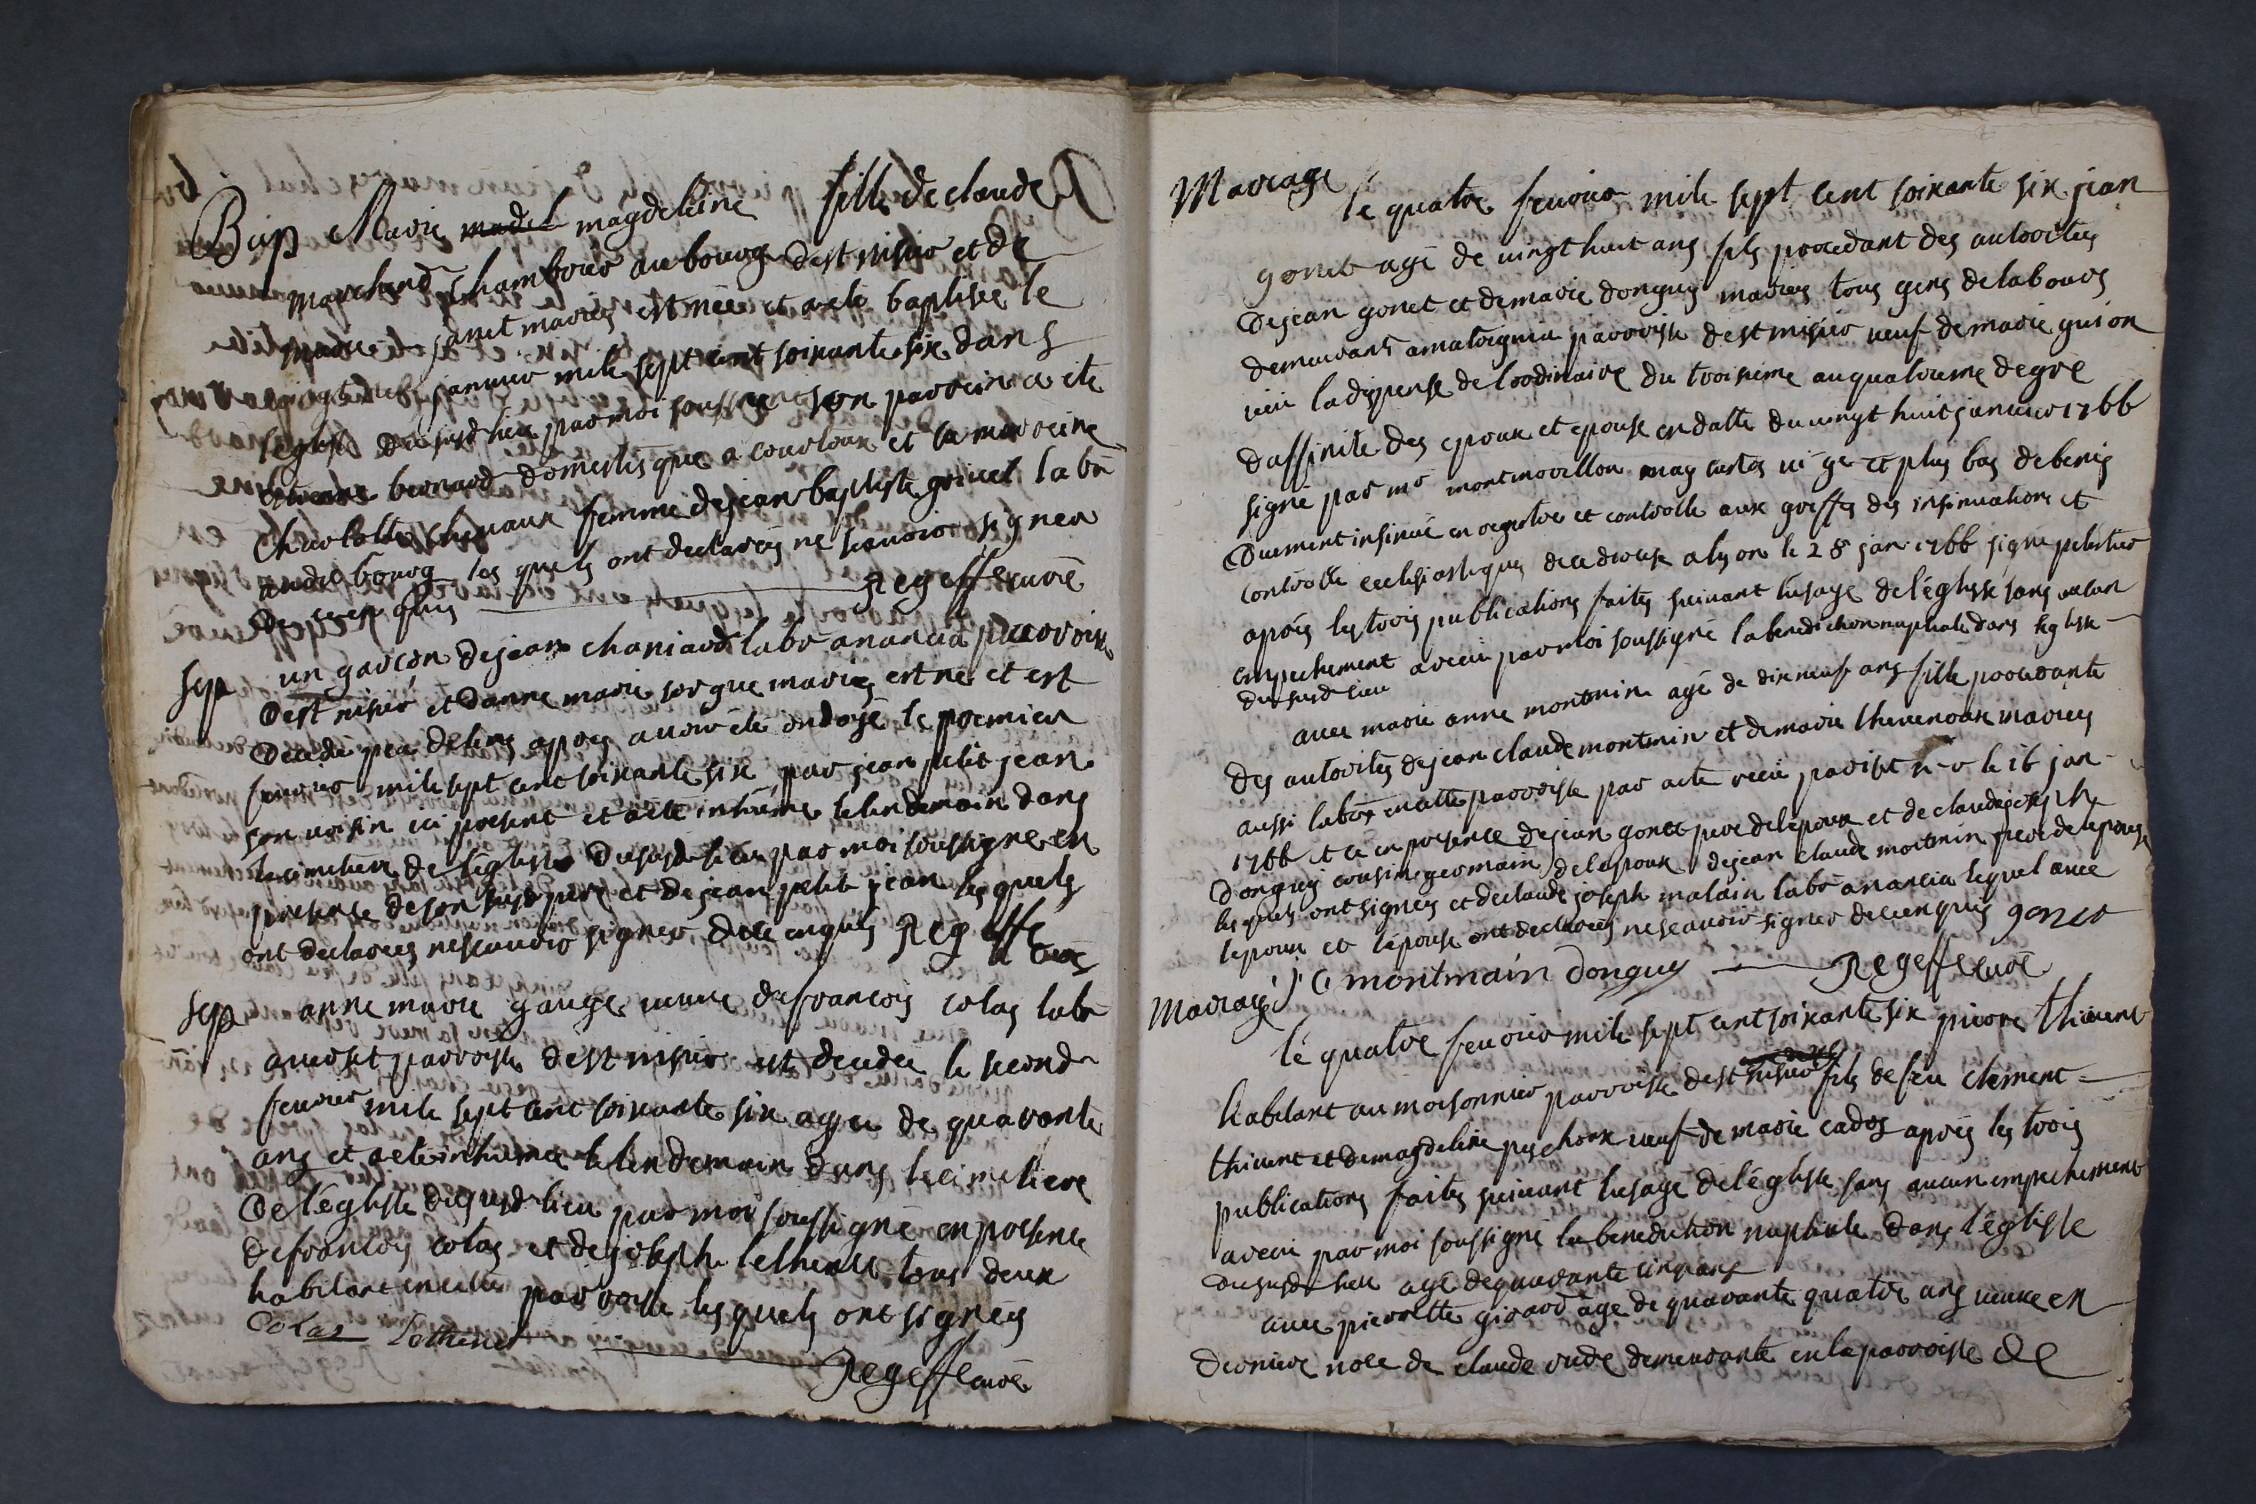 Bap Marie madel magdeleine fille de claude
marchand chambrier au bourg de st nisier et de
marie janet mariés est née et a été baptisée le
vingt neuf janvier mile sept cent soixante six dans
leglise du susd lieu par moi soussigné son parrein a été
bernard domestique a courloux et sa marreine
charlotte chevaux femme de jean baptiste grivet labr
audit bourg les quels ont declarés ne scavoir signer
de ce enquis Regeffe curé
sep un garcon de jean chaniard labr a parroisse
de st nisier et danne marie sorgue mariés est né et est
decedé peu de tems apres avoir été ondoyé le premier
fevrier mile sept cent soixante six par jean petit jean
son voisin ici present et a été inhumé le lendemain dans
le cimetiere de leglise du susd lieu par moi soussigné en
presence de son susd pere et de jean petit jean les quels
ont declarés ne scavoir signer de ce enquis Regeffe curé
sep anne marie gauge veuve de francois colas labr
parroisse de st nisier est decedée le second
fevrier mile sept cent soixante six agée de quarante
ans et a été inhumée le lendemain dans le cimetiere
de léglise du susd lieu par moi soussigné en presence
de francois colas et de joseph lethenet tous deux
habitant en cette parroisse les quels ont signés
Colas Lethenet
Regeffe curé
Mariage le quatre fevrier mile sept cent soixante six jean
gonet agé de vingt huit ans fils procedant des autorités
de jean gonet et de marie donguy mariés tous gens de labours
demeurant a parroisse de st nisier veuf de marie guion
veu la dispense de lordinaire du troisieme au quatrieme degré
daffinité des epoux et epouse en datte du vingt huit janvier 1766
signé par mr montmorillon vi ge et plus bas de benis
duement insinué en registre et controllé aux greffes des insinuations et
controlle ecclesiastiques de ce diocese a lyon le 28 jan 1766 signé peletier
après les trois publications faites suivant lusage de léglise sans aucun
empechement a receu par moi soussigné la benediction nuptiale dans leglise
du susd lieu
avec marie anne montmin agé de dix neuf ans fille procedante
des autorités de jean claude montmin et de marie thevenoux mariés
aussi labr en cette parroisse par acte receu par le 16 jan
1766 et ce en presence de jean gonet pere de lépoux et de claude joseph
donguy cousin germain de lepoux de jean claude montmin pere de lepouse
les quels ont signés et de claude joseph malain labr a lequel avec
lepoux et lépouse ont declarés ne scavoir signer de ce enquis gonet
J C montmain donguy Regeffe curé
Mariage
le quatre fevrier mile sept cent soixante six pierre thivent
habitant au moisonnier parroisse de st nisier fils de feu clement
thivent et de magdeleine pechoux veuf de marie cadoz après les trois
publications faites suivant lusage de léglise sans aucun empechement
a receu par moi soussigné la benediction nuptiale dans léglise
du susd lieu agé de quarante cinq ans
avec pierrette girard agé de quarante quatre ans veuve en
derniere noce de claude rude demeurante en la parroisse de